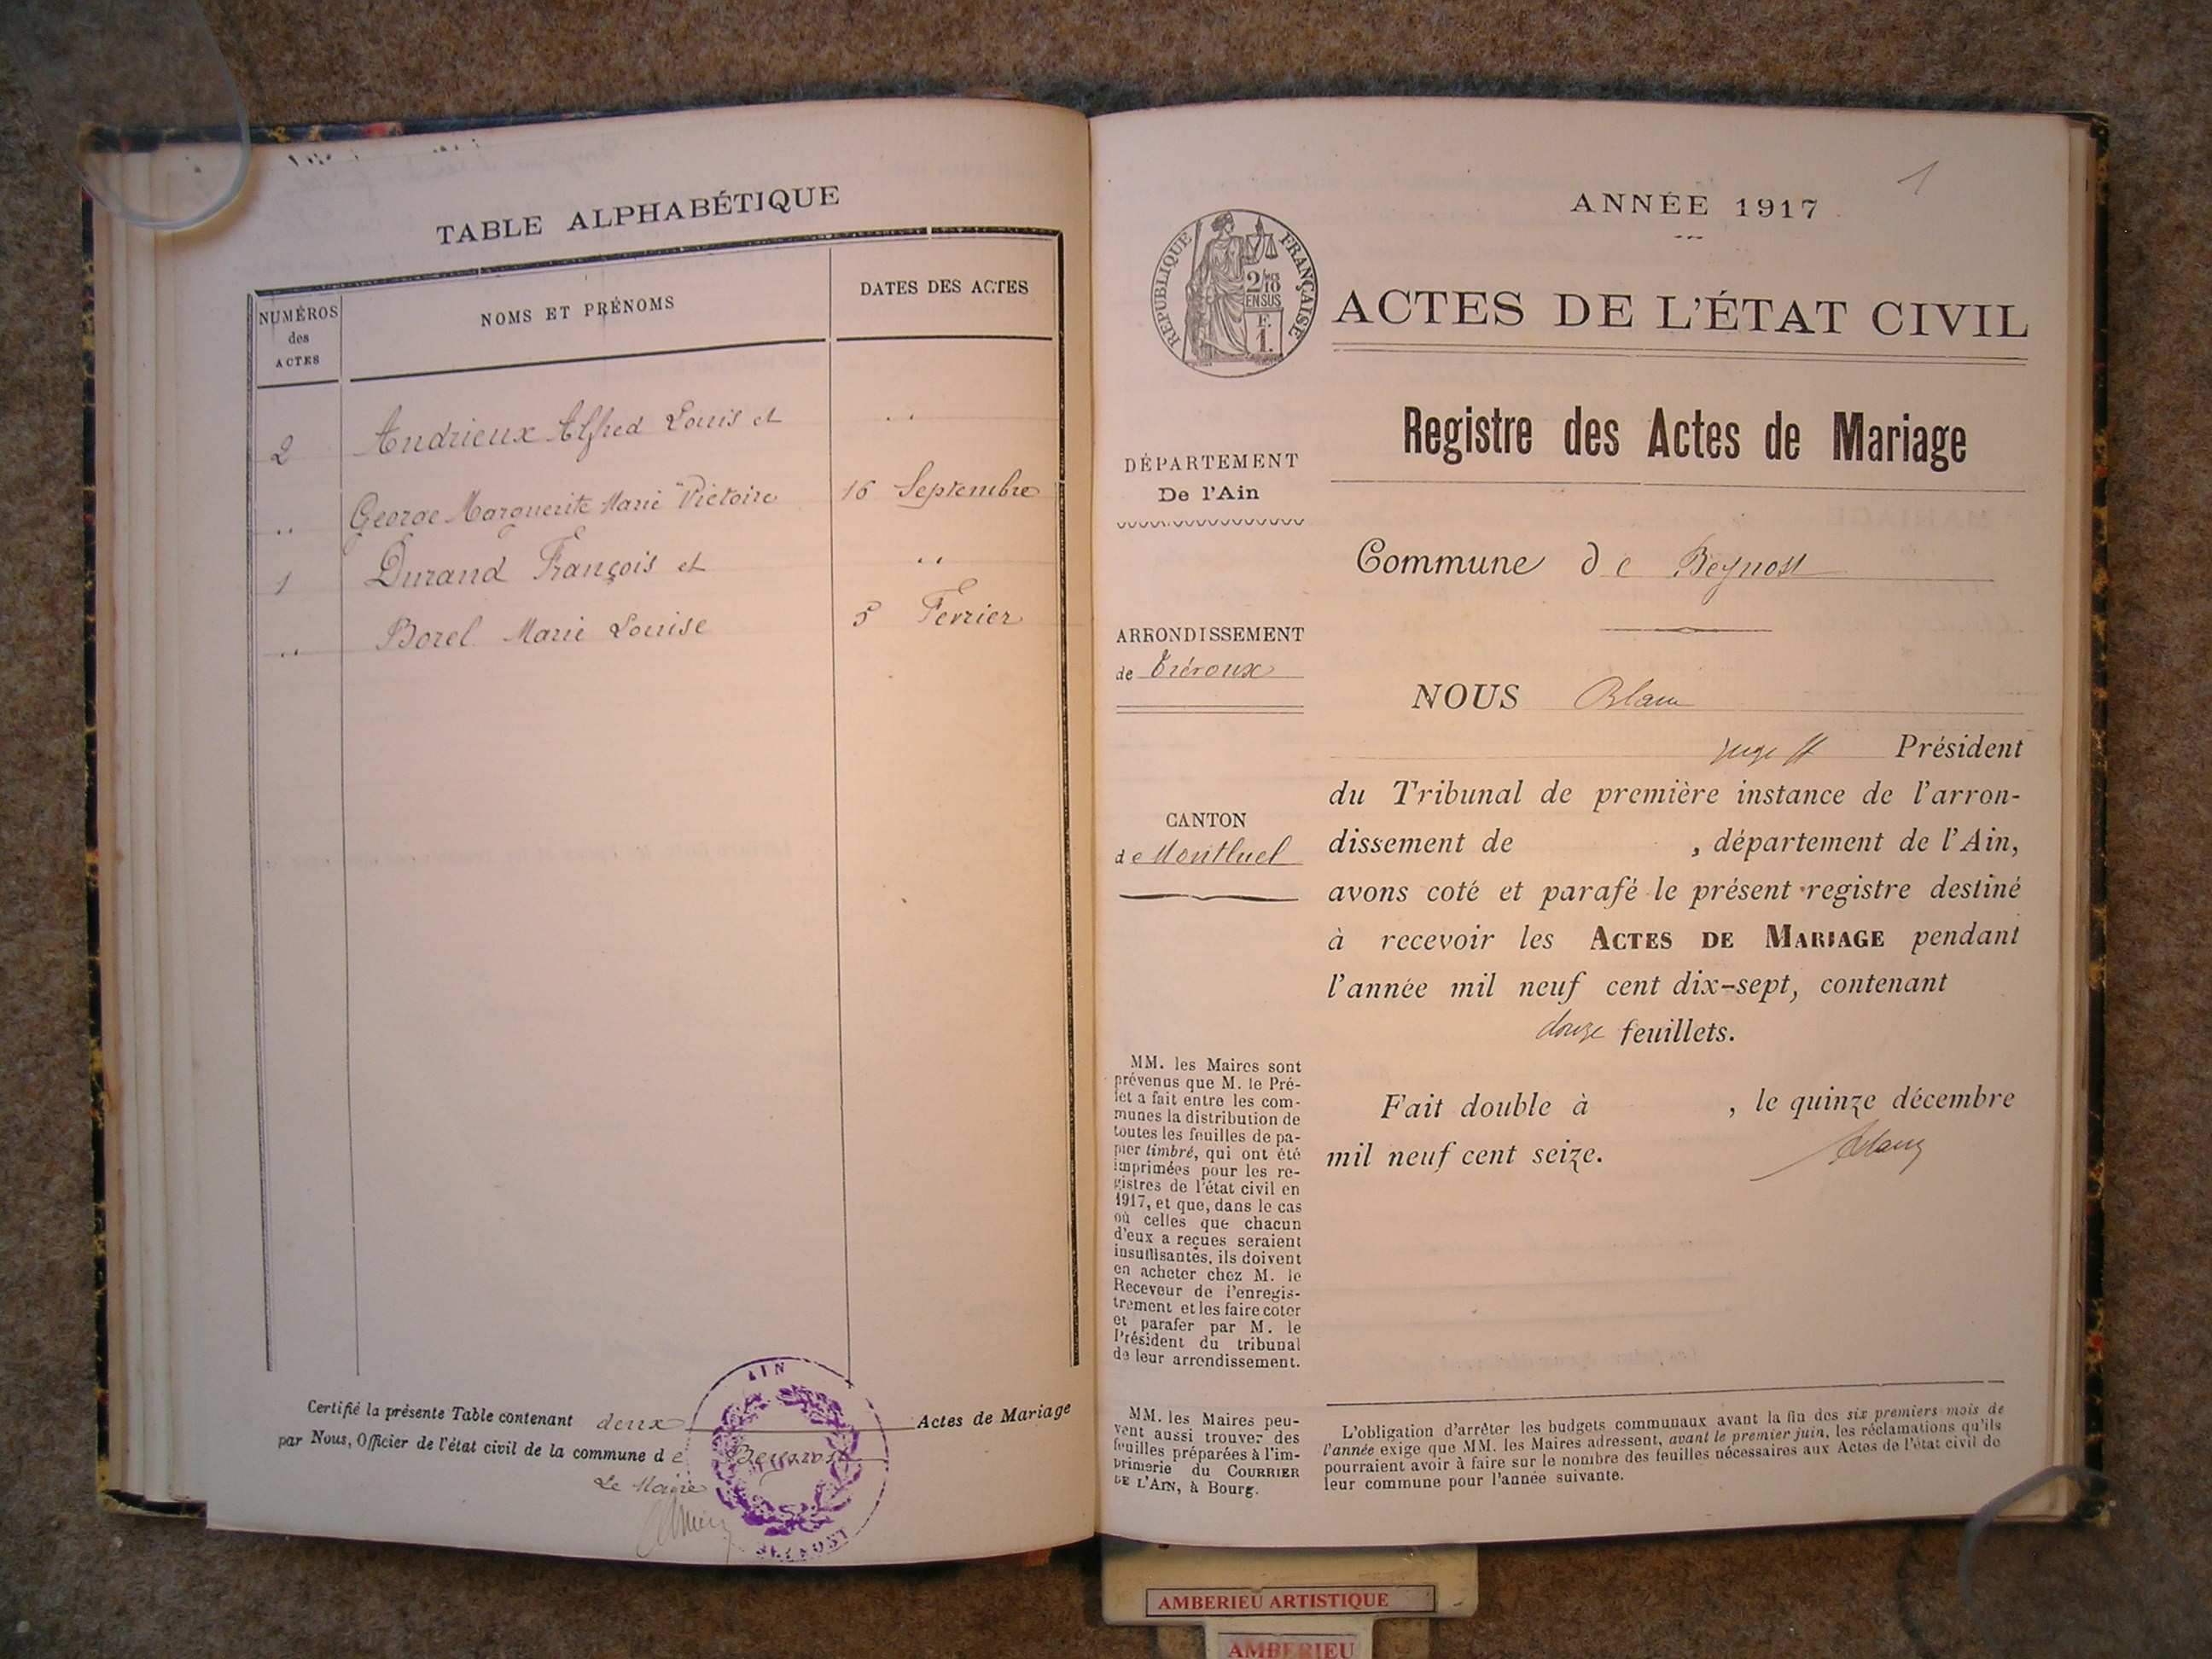 TABLE ALPHABÉTIQUE
NUMÉROS des ACTES
NOMS ET PRÉNOMS
DATES DES ACTES
2 Andrieux Alfred Louis et ..
.. George Marguerite Marie Victoire 16 Septembre
1 Durand François et ..
.. Borel Marie Louise 5 Fevrier
Certifié la présente Table contenant deux Actes de Mariage
par Nous, Officier de l'état civil de la commune de Beynost
Le Maire
AIN
BEYNOST
1
ANNÉE 1917
RÉPUBLIQUE FRANÇAISE
2/10
EN SUS
F.
1.
ACTES DE L'ÉTAT CIVIL
Registre des Actes de Mariage
DÉPARTEMENT
De l'Ain
Commune de Beynost
ARRONDISSEMENT
de Trévoux
NOUS Blanc
juge ff Président
du Tribunal de première instance de l'arron-
CANTON
de Montluel
dissement de , département de l'Ain,
avons coté et parafé le présent registre destiné
à recevoir les ACTES DE MARIAGE pendant
l'année mil neuf cent dix-sept, contenant
douze feuillets.
Fait double à , le quinze décembre
mil neuf cent seize.
MM. les Maires sont
prévenus que M. le Pré-
fet a fait entre les com-
munes la distribution de
toutes les feuilles de pa-
pier timbré, qui ont été
imprimées pour les re-
gistres de l'état civil en
1917, et que, dans le cas
où celles que chacun
d'eux a reçues seraient
insuffisantes, ils doivent
en acheter chez M. le
Receveur de l'enregis-
trement et les faire coter
et parafer par M. le
Président du tribunal
de leur arrondissement.
MM. les Maires peu-
vent aussi trouver des
feuilles préparées à l'im-
primerie du COURRIER
DE L'AIN, à Bourg.
L'obligation d'arrêter les budgets communaux avant la fin des six premiers mois de
l'année exige que MM. les Maires adressent, avant le premier juin, les réclamations qu'ils
pourraient avoir à faire sur le nombre des feuilles nécessaires aux Actes de l'état civil de
leur commune pour l'année suivante.
AMBERIEU ARTISTIQUE
AMBERIEU